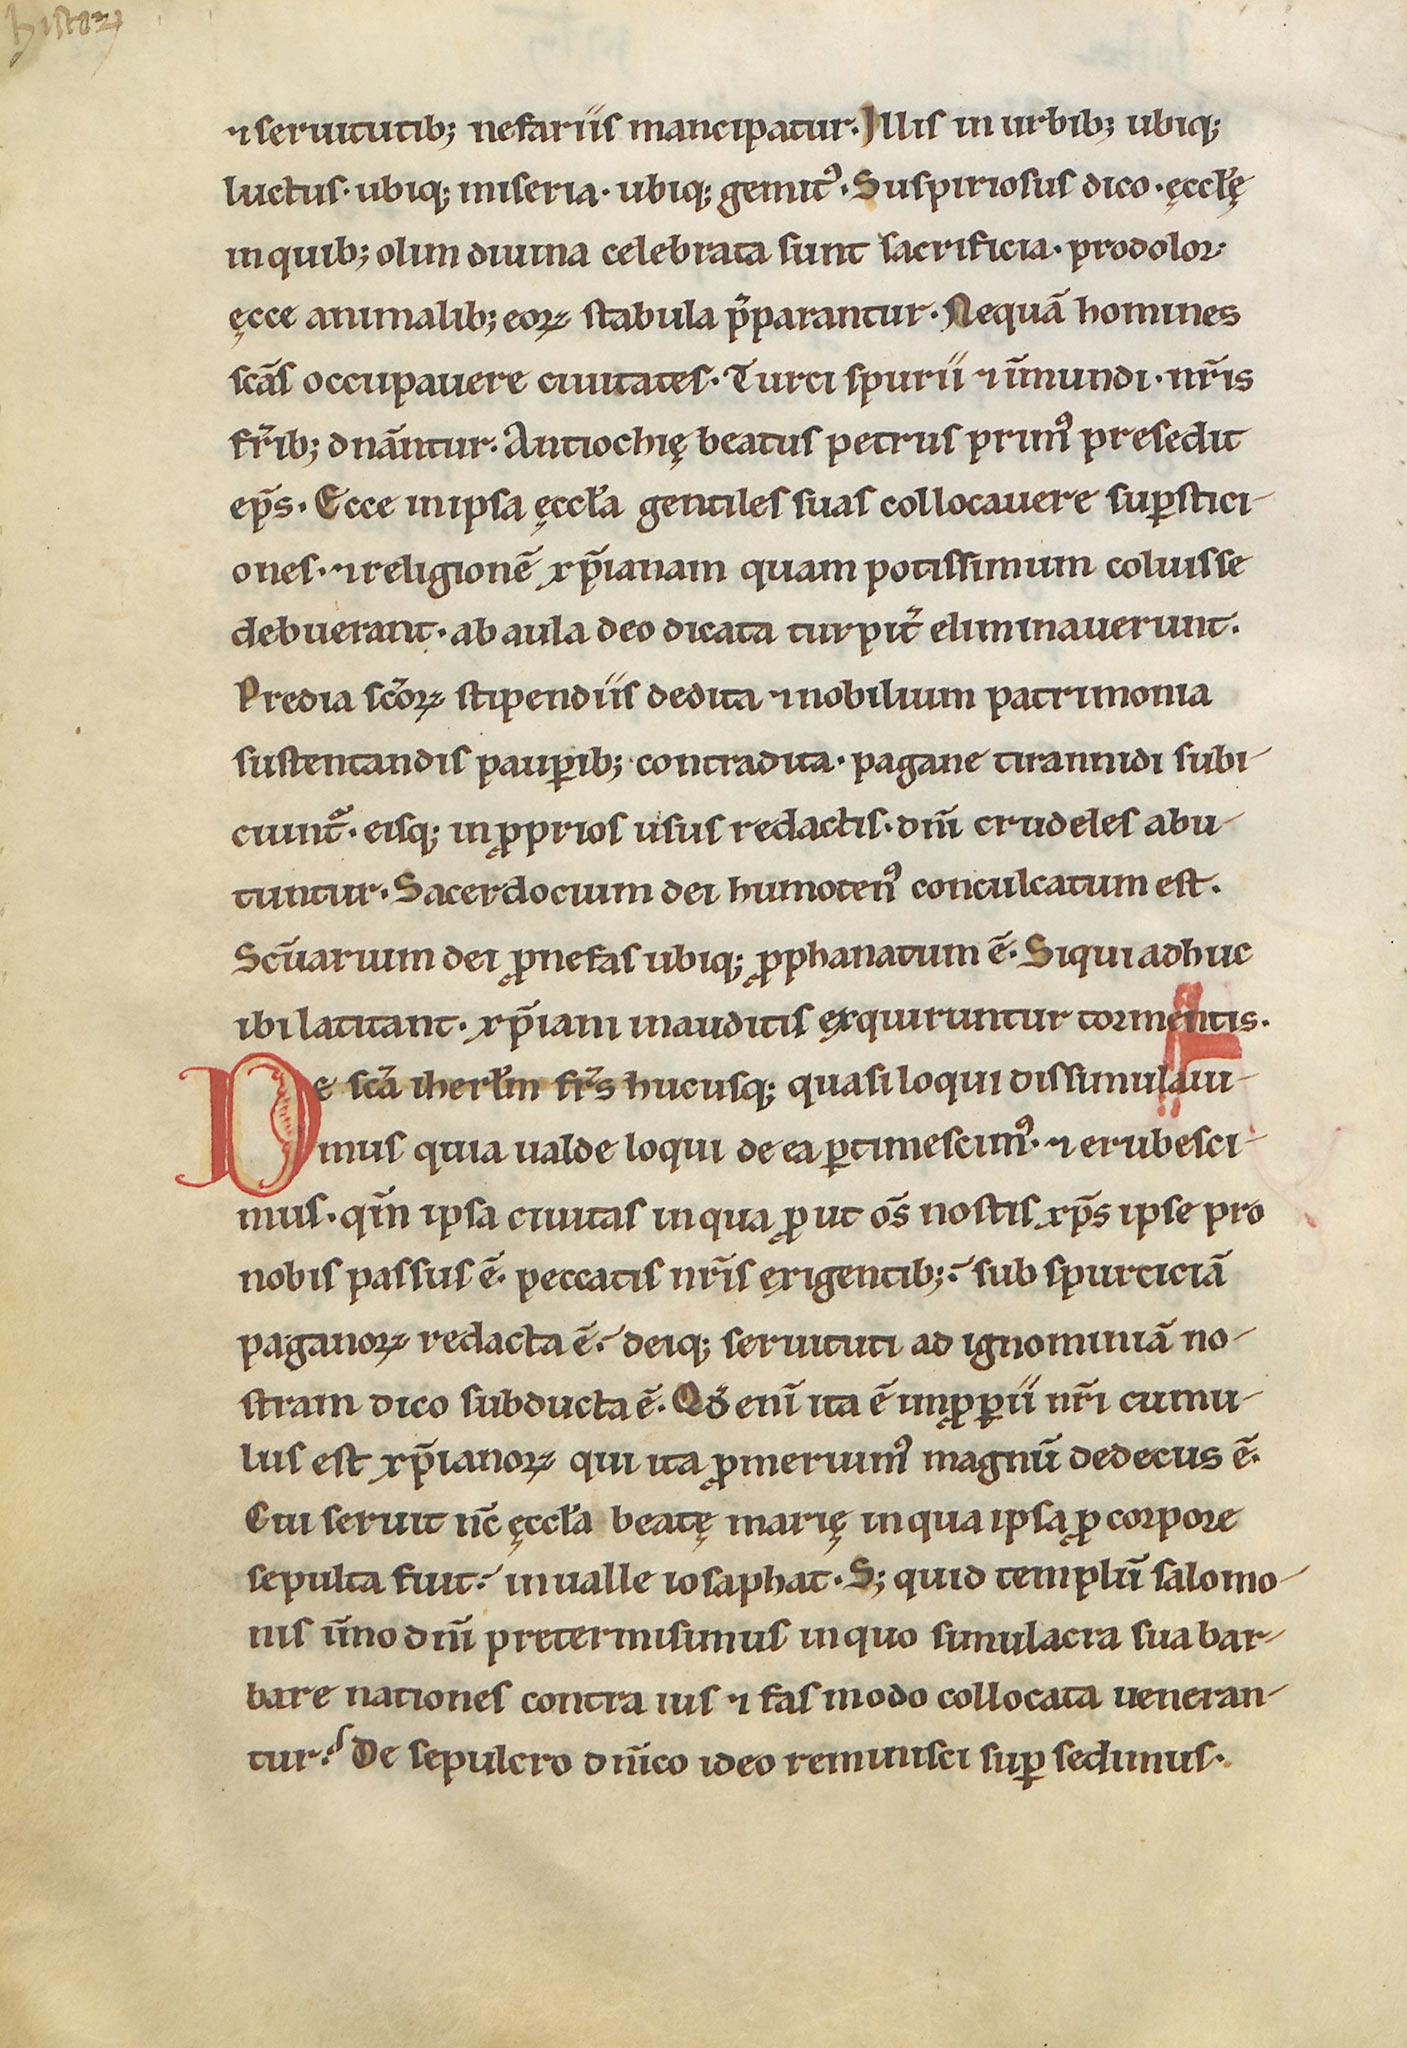 histor̃
⁊ seruitutib; nefariis mancipatur. Illis in urbib; ubiq;
luctus· ubiq; miseria· ubiq; gemit᾽. Suspiriosus dico· ęccłę
in quib; olim diuina celebrata sunt sacrificia· prodolor·
ęcce animalib; eoꝝ stabula p̄parantur. Nequā homines
scās occupauere ciuitates. Turci spurii ⁊ īmundi· nr̄is
fr̄ib; dnāntur. Antiochię beatus petrus prim᾽ presedit
ep̄s. Ecce in ipsa ęccła gentiles suas collocauere suꝑstici-
ones· ⁊ religionē xp̄ianam quam potissimum coluisse
debuerant· ab aula deo dicata turpit̄ eliminauerunt.
Predia scōꝝ stipendiis dedita ⁊ nobilium patrimonia
sustentandis pauꝑib; contradita· pagane tirannidi subi-
ciunt᷑· eisq; in ꝓprios usus redactis· dnī crudeles abu-
tuntur. Sacerdocium dei humoten᾽ conculcatum est.
Scūarium dei ꝓnefas ubiq; ꝓphanatum ē. Siqui adhuc
ibi latitant· xp̄iani inauditis ęxquiruntur tormentis.
De scā iherłm fr̄s hucusq; quasi loqui dissimulaui-
mus quia ualde loqui de ea ꝑtimescim᾽· ⁊ erubesci-
mus· qm̄ ipsa ciuitas in qua ꝓ ut om̄s nostis xp̄s ipse pro
nobis passus ē· peccatis nr̄is ęxigentib; sub spurciciā
paganoꝝ redacta ē· deiq; seruituti ad ignominiā no-
stram dico subducta ē. Qd̄ enī ita ē inꝓꝑii nr̄i cumu-
lus est xp̄ianoꝝ qui ita ꝓmeruim᾽ magnū dedecus ē.
Cui seruit nc̄ ęccła beatę marię in qua ipsa ꝓ corpore
sepulta fuit· in ualle iosaphat. S; quid templū salomo-
nis īmo dnī pretermisimus in quo simulacra sua bar-
bare nationes contra ius ⁊ fas modo collocata ueneran-
tur? De sepulcro dn̄ico ideo reminisci suꝑsedimus.